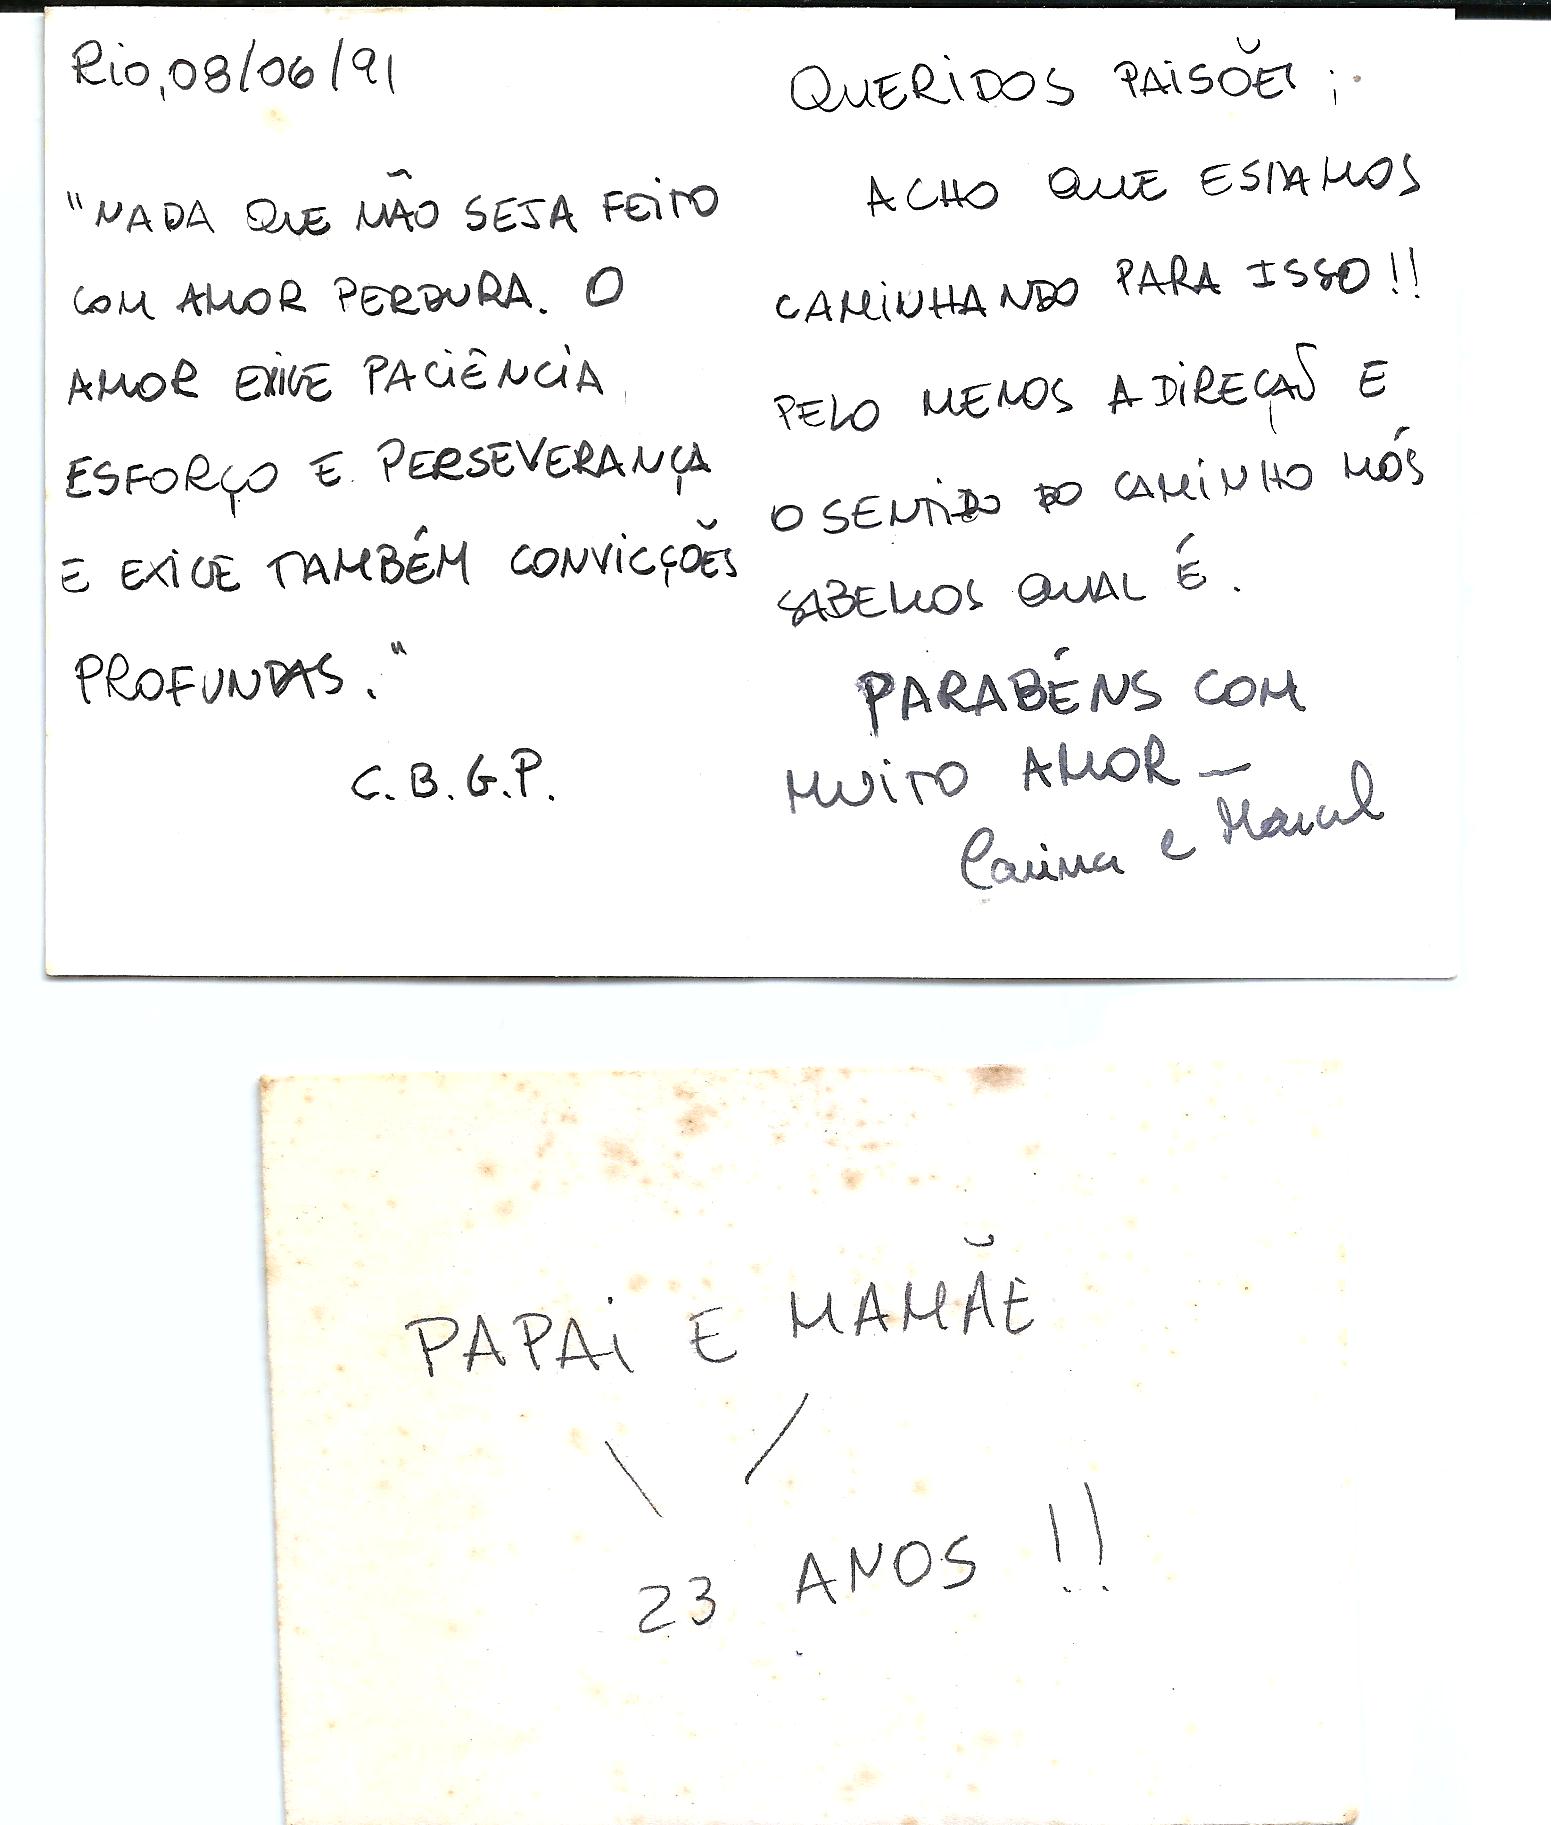 Rio, 08/06/91
"NADA QUE NÃO SEJA FEITO
COM AMOR PERDURA. O
AMOR EXIGE PACIÊNCIA,
ESFORÇO E PERSEVERANÇA
E EXIGE TAMBÉM CONVICÇÕES
PROFUNDAS."
C.B.G.P.
QUERIDOS PAISÕES ;
ACHO QUE ESTAMOS
CAMINHANDO PARA ISSO!!
PELO MENOS A DIREÇÃO E
O SENTIDO DO CAMINHO NÓS
SABEMOS QUAL É.
PARABÉNS COM
MUITO AMOR —
Carina e Marcel
PAPAI E MAMÃE
23 ANOS !!